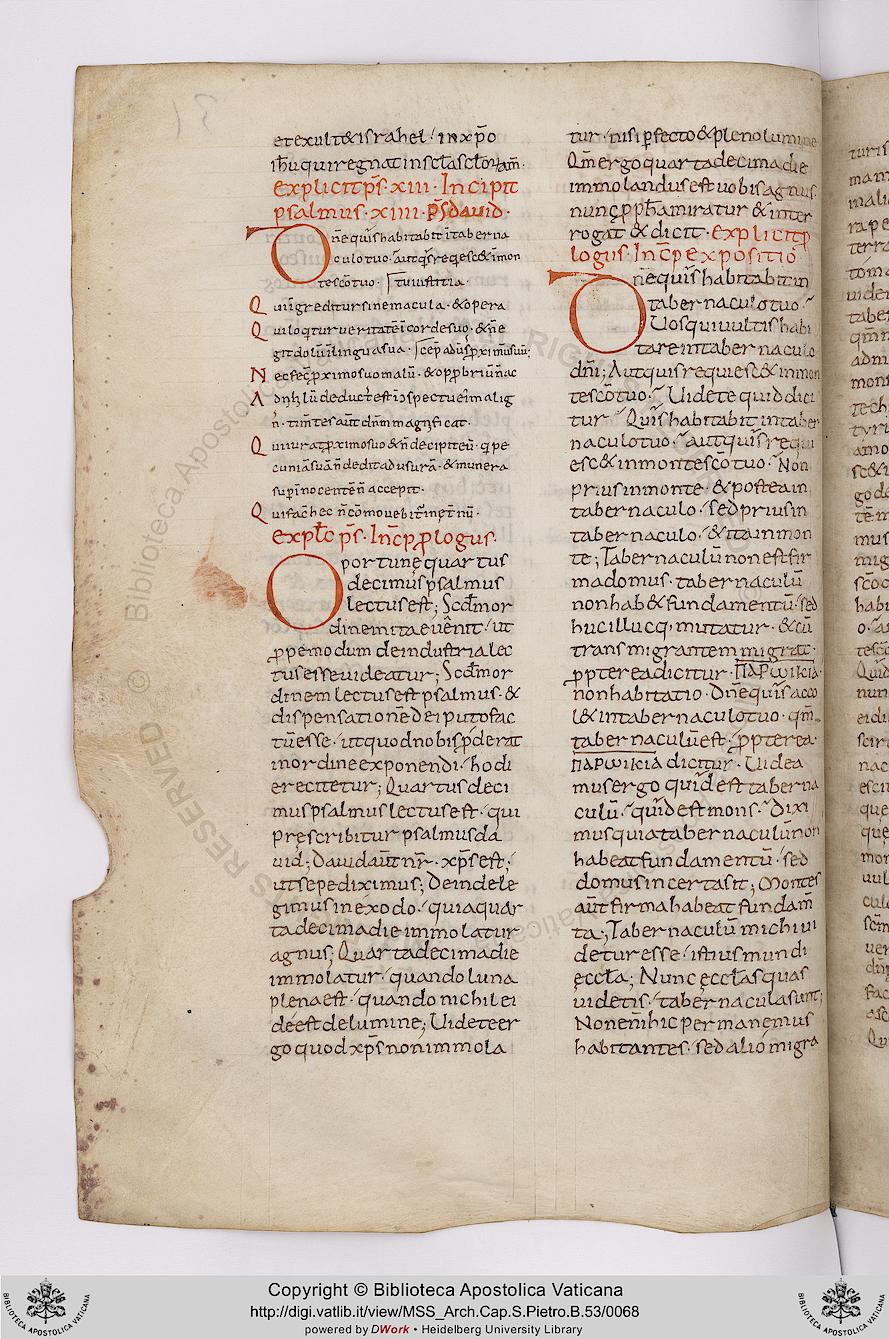 et exult& israhel · in xp̄o
ih̄u qui regnat in scl̄a scl̄orū am̄ ·
explicit ps̄ · xiii · Incipit
psalmus · xiiii · ps̄ david ·
Dn̄e quis habitabit ī taberna
culo tuo · aut q̄s reqesc& ī mon
te sc̄o tuo ·
Qui īgreditur sine macula · & opera
tur iustitia ·
Qui loqtur veritatē ī corde suo · & n̄ e
git dolū ī lingua sua ·
Nec fec̄ pximo suo malū · & opp̄briū n̄ ac
cep̄ adūs pximū suū ;
Ad nihilū deduct' est ī ɔspectu ei' malig
n' · tim̄tes aūt dn̄m magnificat ·
Qui iurat pximo suo & n̄ decipit eū · q pe
cuniā suā n̄ dedit ad usurā · & munera
sup īnocentē n̄ accepit ·
Qui facit hec n̄ cōmovebit' ī et̄nū ·
explc̄ ps̄ · Inc̄p plogus ·
Oportune quartus
decimus psalmus
lectus est ; Scd̄m or
dinem ita evēnit · ut
ppemodum de industria lec
tus esse videatur ; Scd̄m or
dinem lectus est psalmus · &
dispensationē dei puto fac
tū esse · ut quod nobis pderat
in ordine exponendi · hodi
e recitetur ; Quartus deci
mus psalmus lectus est · qui
pręscribitur psalmus da
vid ; David aūt nr̄ · xp̄s est ·
ut sepe diximus ; Deinde le
gimus in exodo · quia quar
ta decima die immolatur
agnus ; Quarta decima die
immolatur · quando luna
plena est · quando nichil ei
deest de lumine ; Videte er
go quod xp̄s non immola
tur · nisi pfecto & pleno lumine
Qm̄ ergo quarta decima die
immolandus est vobis agnus
nunc pph̄a miratur & inter
rogat & dicit · explicit p
logus · Inc̄p expositio
Dn̄e quis habitabit in
tabernaculo tuo
Vos qui vultis habi
tare in tabernaculo
dn̄i ; Aut quis requiesc& in mon
te sc̄o tuo · Videte quid dici
tur · Quis habitabit in taber
naculo tuo · aut quis requi
esc& in monte sc̄o tuo · Non
prius in monte · & postea in
tabernaculo · sed prius in
tabernaculo · & ita in mon
te ; Tabernaculū non est fir
ma domus · tabernaculū
non hab& fundamentū · sed
huc illucq; mutatur · & cū
transmigrantem migrat ·
ppterea dicitur · ΠΑΡѠΙΚΙΑ ·
non habitatio · Dn̄e quis acco
l& in tabernaculo tuo · qm̄
tabernaculū est · ppterea ·
ΠΑΡѠΙΚΙΑ dicitur · Videa
mus ergo quid est taberna
culū · quid est mons · Dixi
mus quia tabernaculū non
habeat fundamentū · sed
domus incerta sit ; Montes
aūt firma habeat fundam̄
ta ; Tabernaculū michi vi
detur esse · istius mundi
ęccl̄a ; Nunc ęccl̄as quas
videtis · tabernacula sunt ;
Non enim hic permanemus
habitantes · sed alio migra
Copyright © Biblioteca Apostolica Vaticana
http://digi.vatlib.it/view/MSS_Arch.Cap.S.Pietro.B.53/0068
powered by DWork • Heidelberg University Library